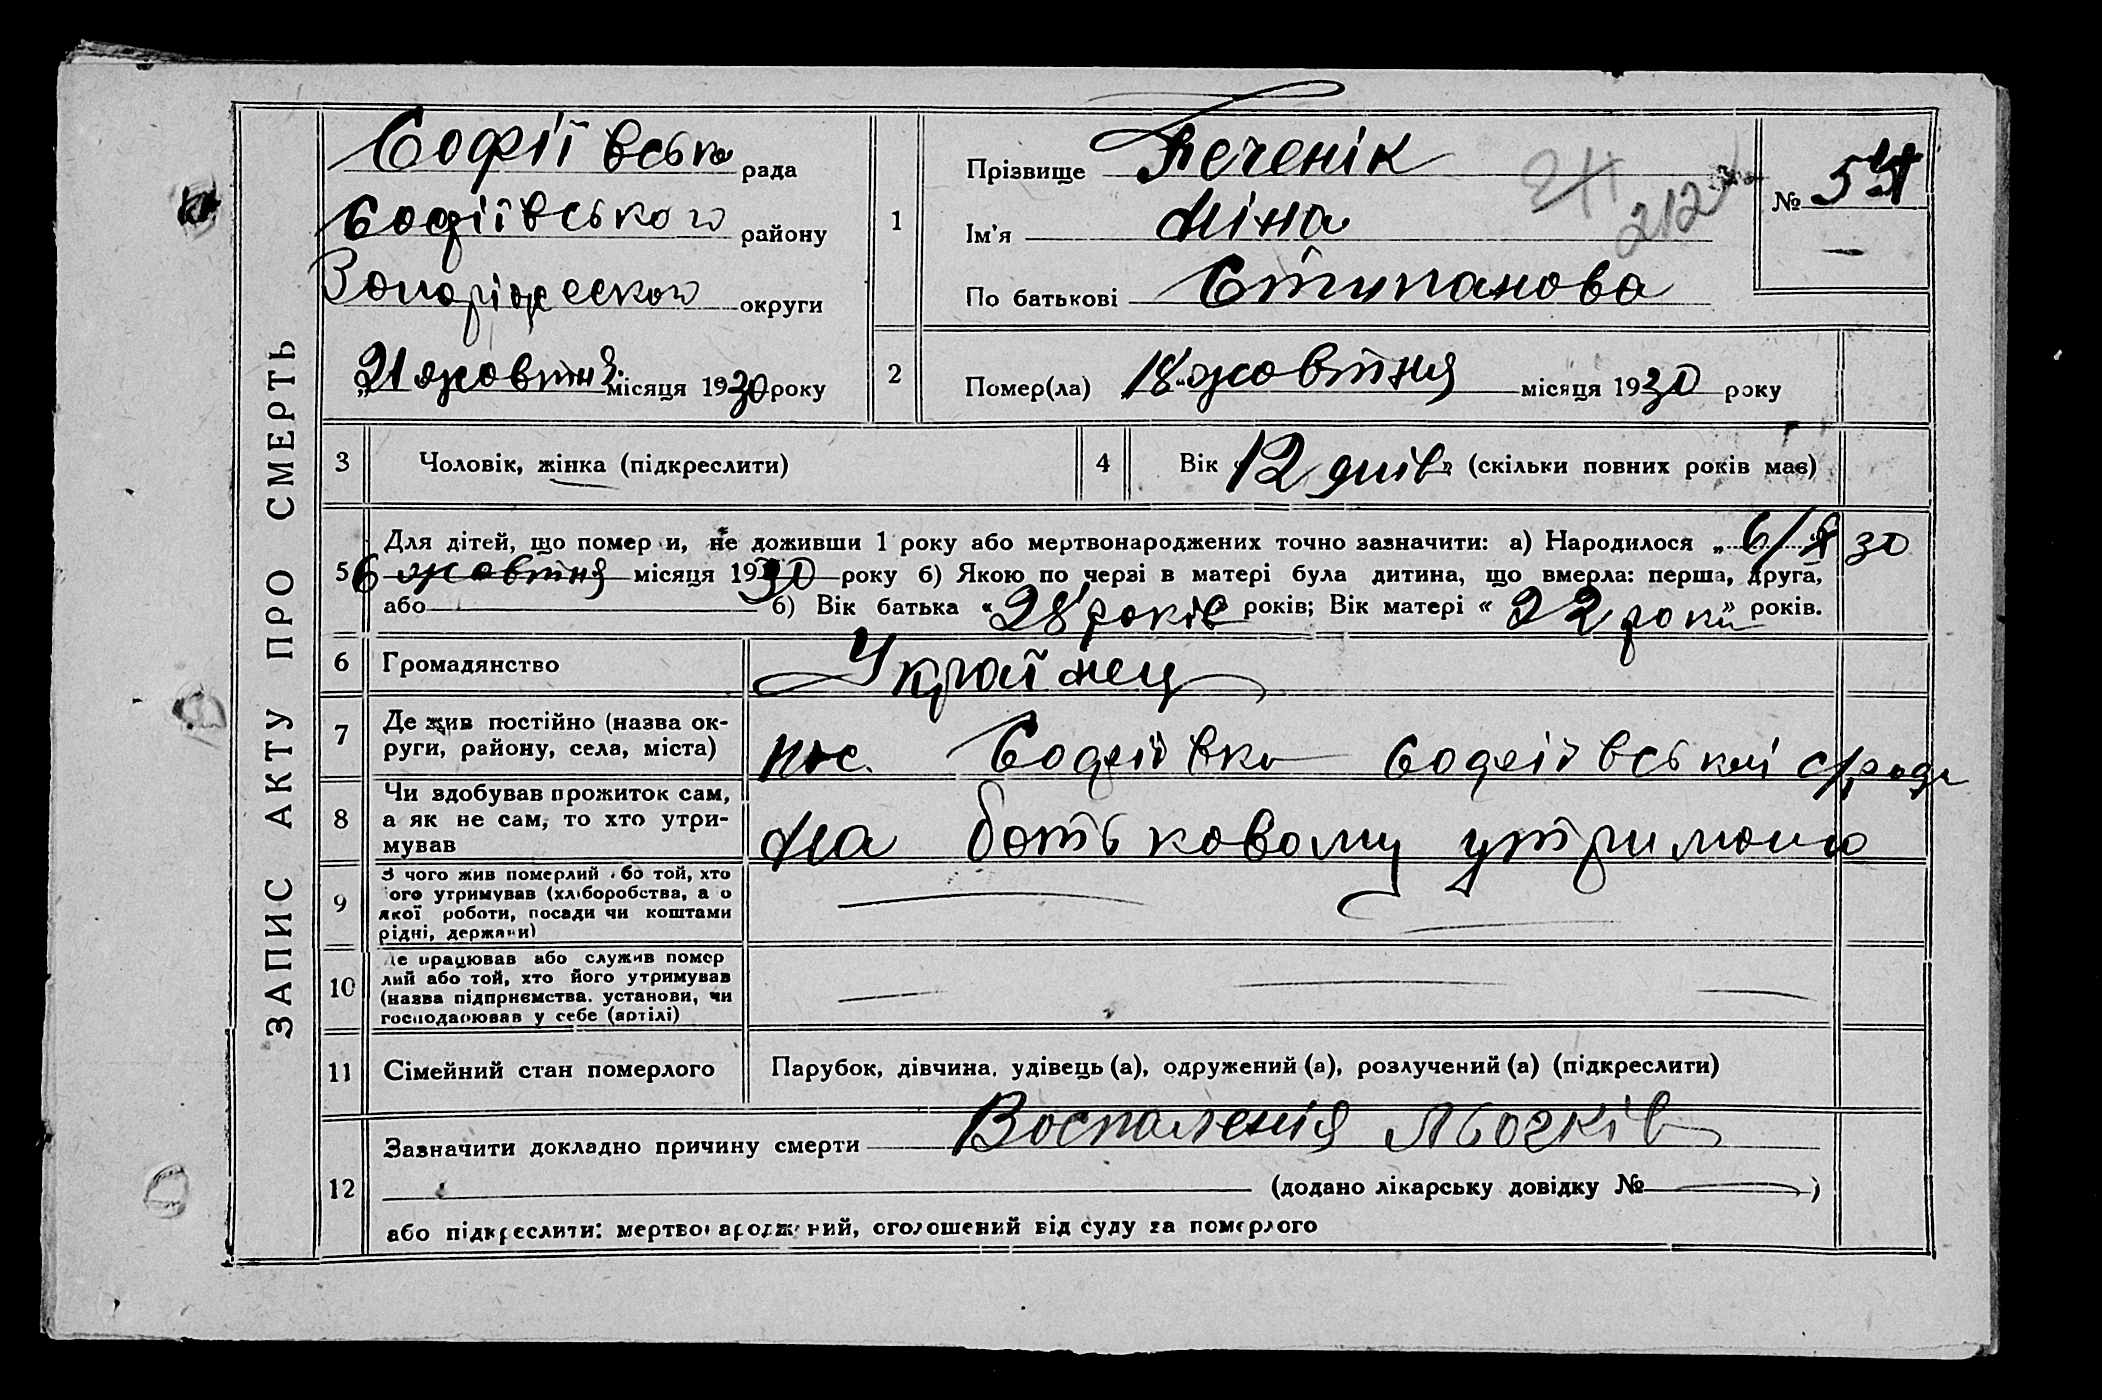 ЗАПИС АКТУ ПРО СМЕРТЬ
Софіївська рада
Софіївського району
Запоріжського округи
„21 жовтня місяця 1930 року
1
Прізвище Печенік
Ім'я Ніна
По батькові Степанова
24
212
№ 54
2
Помер(ла) 18 „жовтня місяця 1930 року
3 Чоловік, жінка (підкреслити)
4 Вік 12 днів (скільки повних років має)
5
Для дітей, що померли, не доживши 1 року або мертвонароджених точно зазначити: а) Народилося „6/X 30
6 жовтня місяця 1930 року б) Якою по черзі в матері була дитина, що вмерла: перша, друга,
або б) Вік батька “28 років” років; Вік матері “22 роки” років.
6 Громадянство Українец
7 Де жив постійно (назва ок-
руги, району, села, міста) пос. Софіївка Софіївської с/ради
8 Чи здобував прожиток сам,
а як не сам, то хто утри-
мував На батьковому утриманю
9 З чого жив померлий або той, хто
його утримував (хліборобства, а о
якої роботи, посади чи коштами
рідні, держави)
10 Де працював або служив помер
лий або той, хто його утримував
(назва підприємства, установи, чи
господарював у себе (артілі)
11 Сімейний стан померлого Парубок, дівчина, удівець (а), одружений (а), розлучений (а) (підкреслити)
12
Зазначити докладно причину смерти Воспаленія льочків
(додано лікарську довідку № )
або підкреслити: мертвонароджений, оголошений від суду за померлого